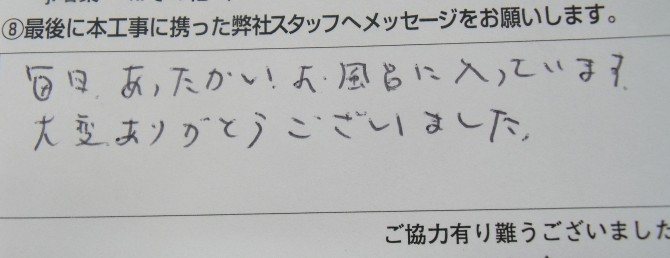 ⑧最後に本工事に携った弊社スタッフへメッセージをお願いします。
毎日、あったかい!お風呂に入っています。
大変ありがとうございました。
ご協力有り難うございました